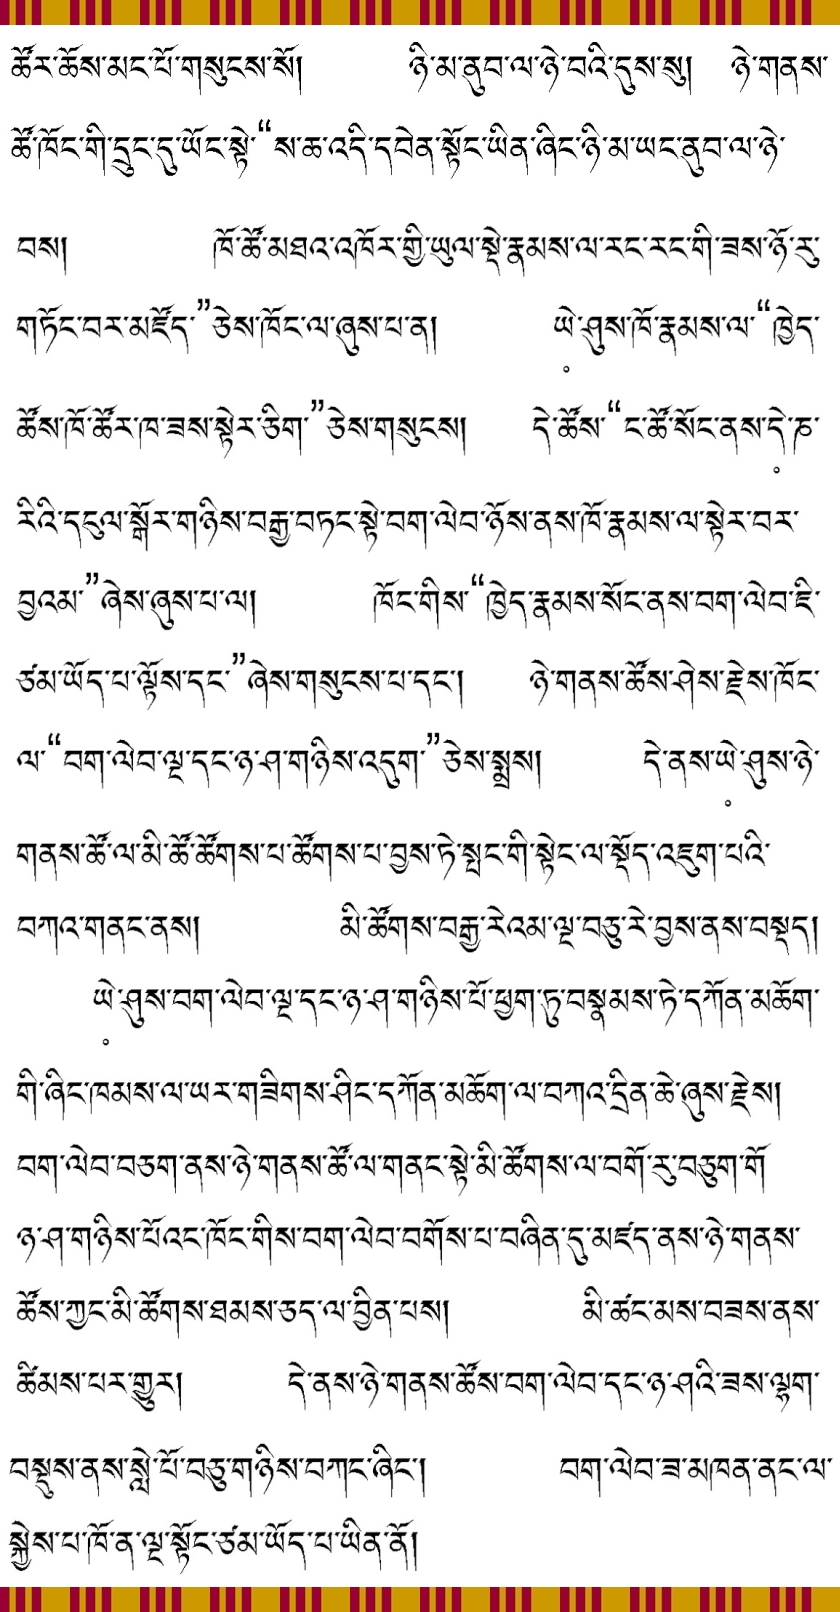 ཚོར་ཆོས་མང་པོ་གསུངས་སོ། ཉི་མ་ནུབ་ལ་ཉེ་བའི་དུས་སུ། ཉེ་གནས་
ཚོ་ཁོང་གི་དྲུང་དུ་ཡོང་སྟེ་“ས་ཆ་འདི་དབེན་སྟོང་ཡིན་ཞིང་ཉི་མ་ཡང་ནུབ་ལ་ཉེ་
བས། ཁོ་ཚོ་མཐའ་འཁོར་གྱི་ཡུལ་སྡེ་རྣམས་ལ་རང་རང་གི་ཟས་ཉོ་རུ་
གཏོང་བར་མཛོད་”ཅེས་ཁོང་ལ་ཞུས་པ་ན། ཡེ་༷ཤུས་ཁོ་རྣམས་ལ་“ཁྱེད་
ཚོས་ཁོ་ཚོར་ཁ་ཟས་སྟེར་ཅིག་”ཅེས་གསུངས། དེ་ཚོས་“ང་ཚོ་སོང་ནས་དེ་༷ཎ་
རིའི་དངུལ་སྒོར་གཉིས་བརྒྱ་བཏང་སྟེ་བག་ལེབ་ཉོས་ནས་ཁོ་རྣམས་ལ་སྟེར་བར་
བྱའམ་”ཞེས་ཞུས་པ་ལ། ཁོང་གིས་“ཁྱེད་རྣམས་སོང་ནས་བག་ལེབ་ཇི་
ཙམ་ཡོད་པ་ལྟོས་དང་”ཞེས་གསུངས་པ་དང་། ཉེ་གནས་ཚོས་ཤེས་རྗེས་ཁོང་
ལ་“བག་ལེབ་ལྔ་དང་ཉ་ཤ་གཉིས་འདུག་”ཅེས་སྨྲས། དེ་ནས་ཡེ་༷ཤུས་ཉེ་
གནས་ཚོ་ལ་མི་ཚོ་ཚོགས་པ་ཚོགས་པ་བྱས་ཏེ་སྤང་གི་སྟེང་ལ་སྡོད་འཇུག་པའི་
བཀའ་གནང་ནས། མི་ཚོགས་བརྒྱ་རེའམ་ལྔ་བཅུ་རེ་བྱས་ནས་བསྡད།
ཡེ་༷ཤུས་བག་ལེབ་ལྔ་དང་ཉ་ཤ་གཉིས་པོ་ཕྱག་ཏུ་བསྣམས་ཏེ་དཀོན་མཆོག་
གི་ཞིང་ཁམས་ལ་ཡར་གཟིགས་ཤིང་དཀོན་མཆོག་ལ་བཀའ་དྲིན་ཆེ་ཞུས་རྗེས།
བག་ལེབ་བཅག་ནས་ཉེ་གནས་ཚོ་ལ་གནང་སྟེ་མི་ཚོགས་ལ་བགོ་རུ་བཅུག་གོ
ཉ་ཤ་གཉིས་པོའང་ཁོང་གིས་བག་ལེབ་བགོས་པ་བཞིན་དུ་མཛད་ནས་ཉེ་གནས་
ཚོས་ཀྱང་མི་ཚོགས་ཐམས་ཅད་ལ་བྱིན་པས། མི་ཚང་མས་བཟས་ནས་
ཚིམས་པར་གྱུར། དེ་ནས་ཉེ་གནས་ཚོས་བག་ལེབ་དང་ཉ་ཤའི་ཟས་ལྷག་
བསྡུས་ནས་སླེ་པོ་བཅུ་གཉིས་བཀང་ཞིང་། བག་ལེབ་ཟ་མཁན་ནང་ལ་
སྐྱེས་པ་ཁོ་ན་ལྔ་སྟོང་ཙམ་ཡོད་པ་ཡིན་ནོ།